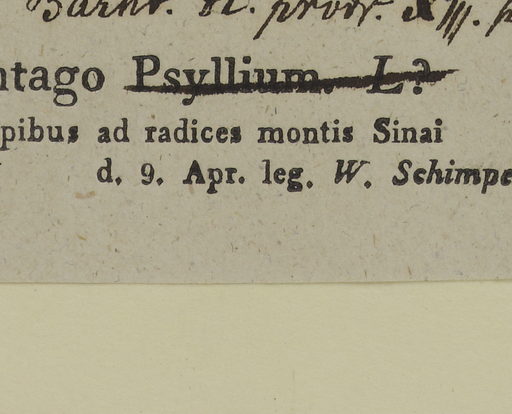 Barnr. N. prodr. XIII.
ntago Psyllium. L.?
pibus ad radices montis Sinai
d. 9. Apr. leg. W. Schimpe